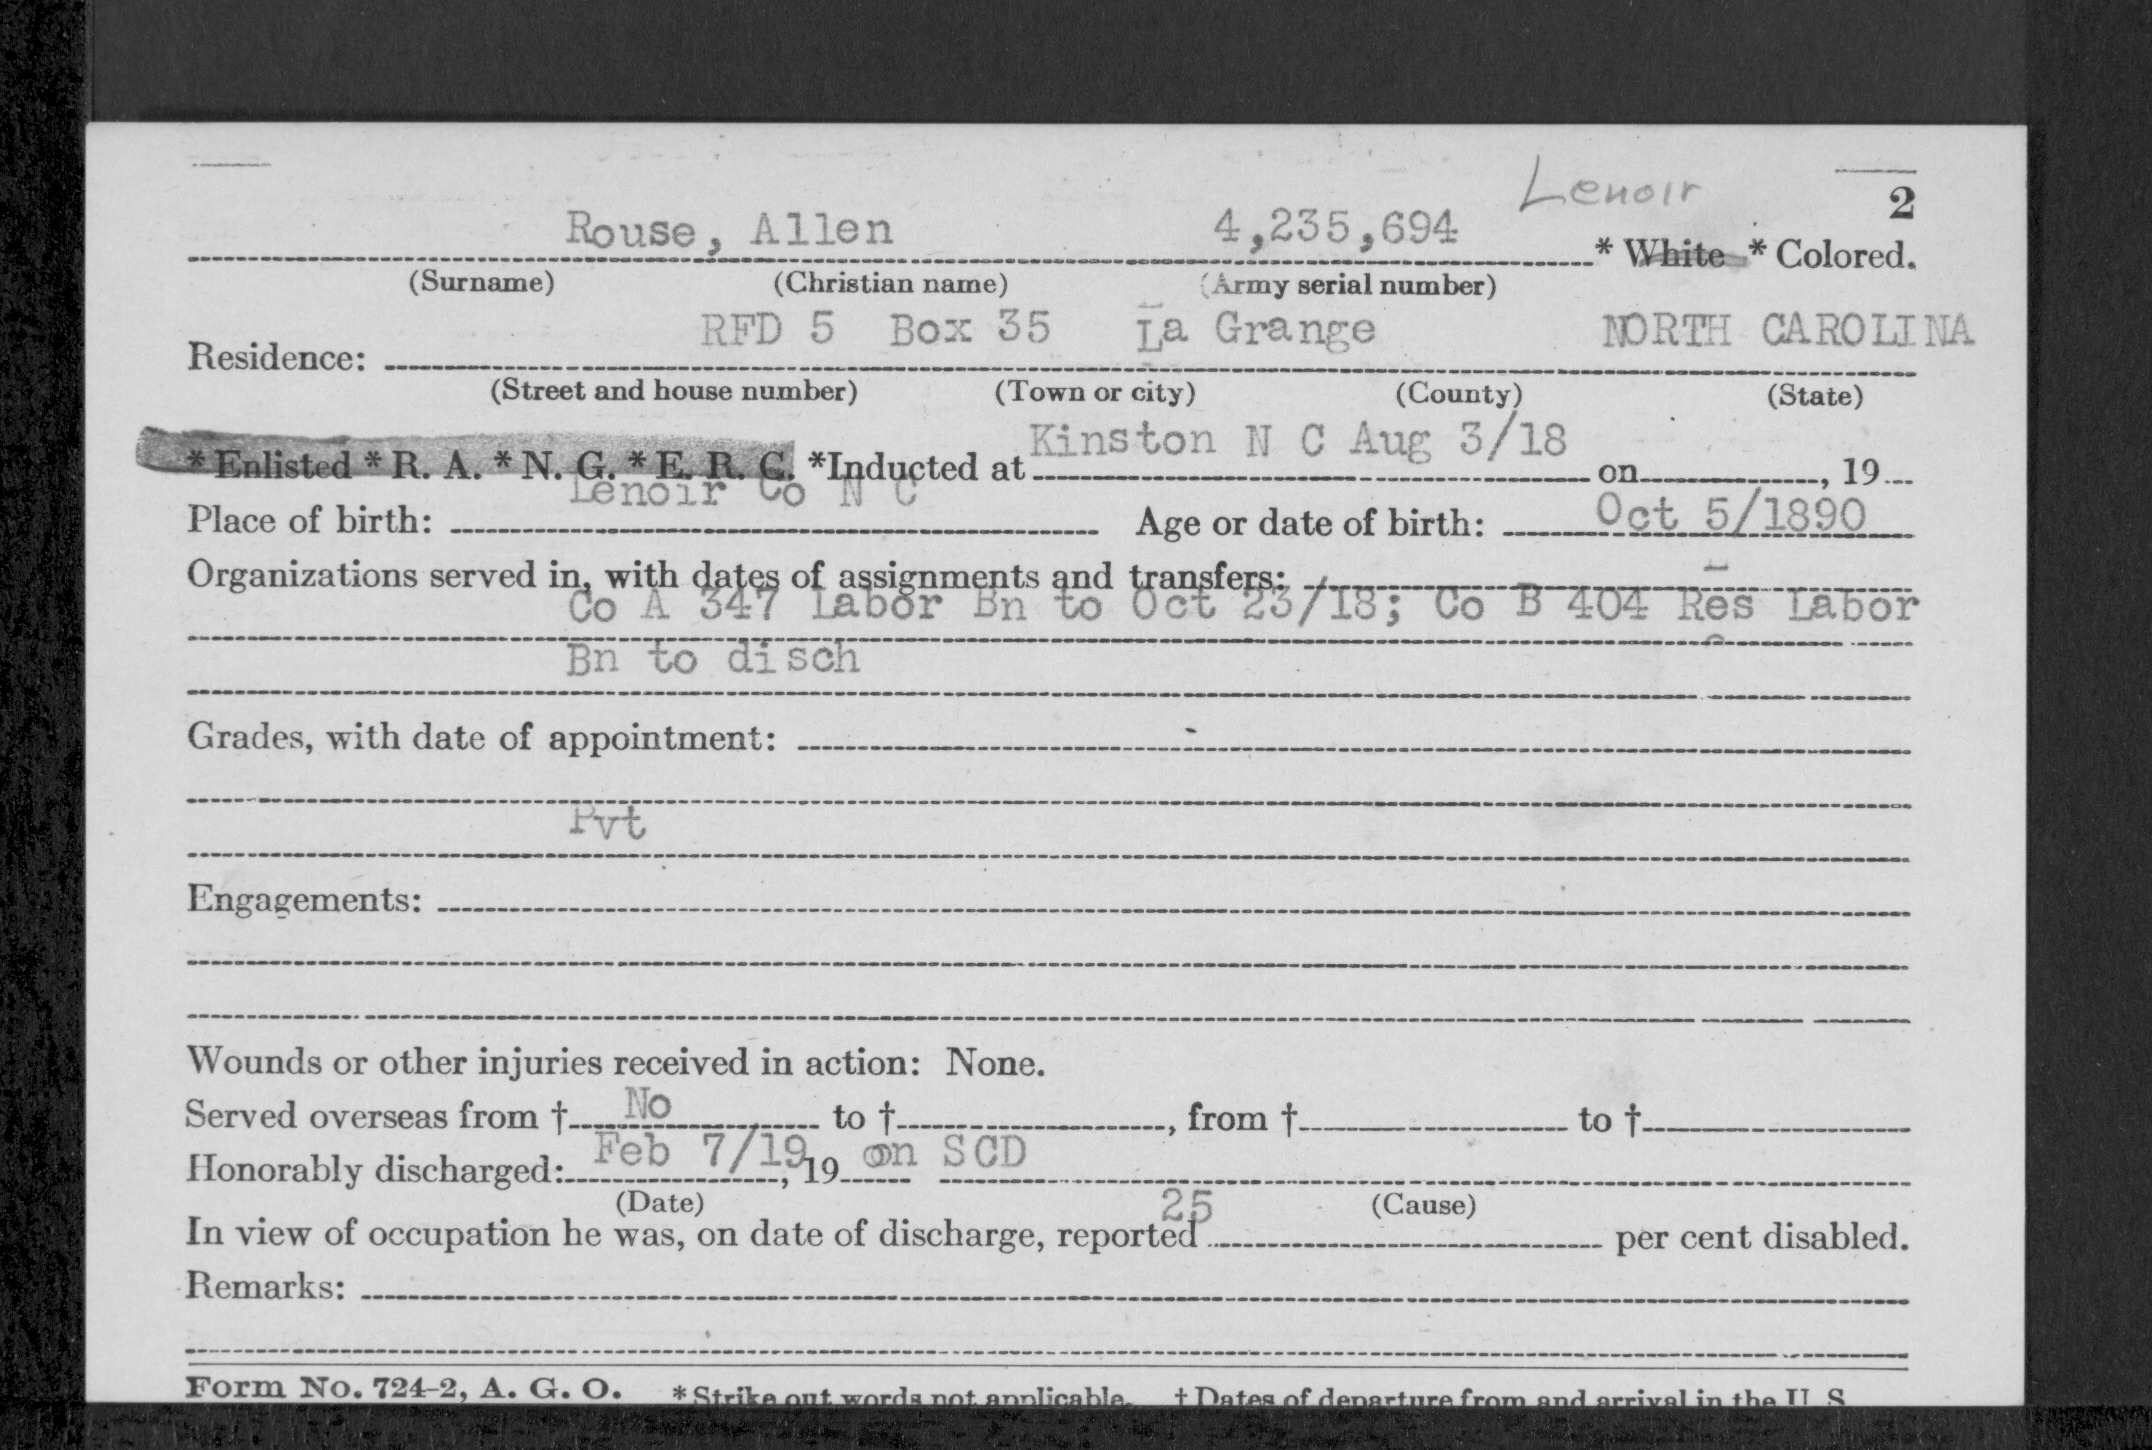 Lenoir
2
Rouse, Allen 4,235,694 * White * Colored.
(Surname) (Christian name) (Army serial number)
RFD 5 Box 35 La Grange NORTH CAROLINA
Residence:
(Street and house number) (Town or city) (County) (State)
Kinston N C Aug 3/18
* Enlisted * R. A. * N. G. * E. R. C. *Inducted at on , 19
Lenoir Co N C
Place of birth: Age or date of birth: Oct 5/1890
Organizations served in, with dates of assignments and transfers:
Co A 347 Labor Bn to Oct 23/18; Co B 404 Res Labor
Bn to disch
Grades, with date of appointment:
Pvt
Engagements:
Wounds or other injuries received in action: None.
Served overseas from † No to † , from † to †
Honorably discharged: Feb 7/19, 19 on SCD
(Date) (Cause)
25
In view of occupation he was, on date of discharge, reported per cent disabled.
Remarks:
Form No. 724-2, A. G. O. * Strike out words not applicable. † Dates of departure from and arrival in the U. S.